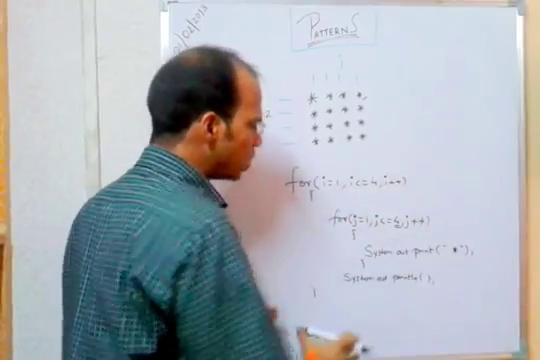 01/02/2013
PATTERNS
j
* * * *
* * * *
* * * *
* * * *
for(i=1,i<=4,i++)
{
for(j=1,j<=4,j++)
{
System.out.print("*");
}
System.out.println();
}